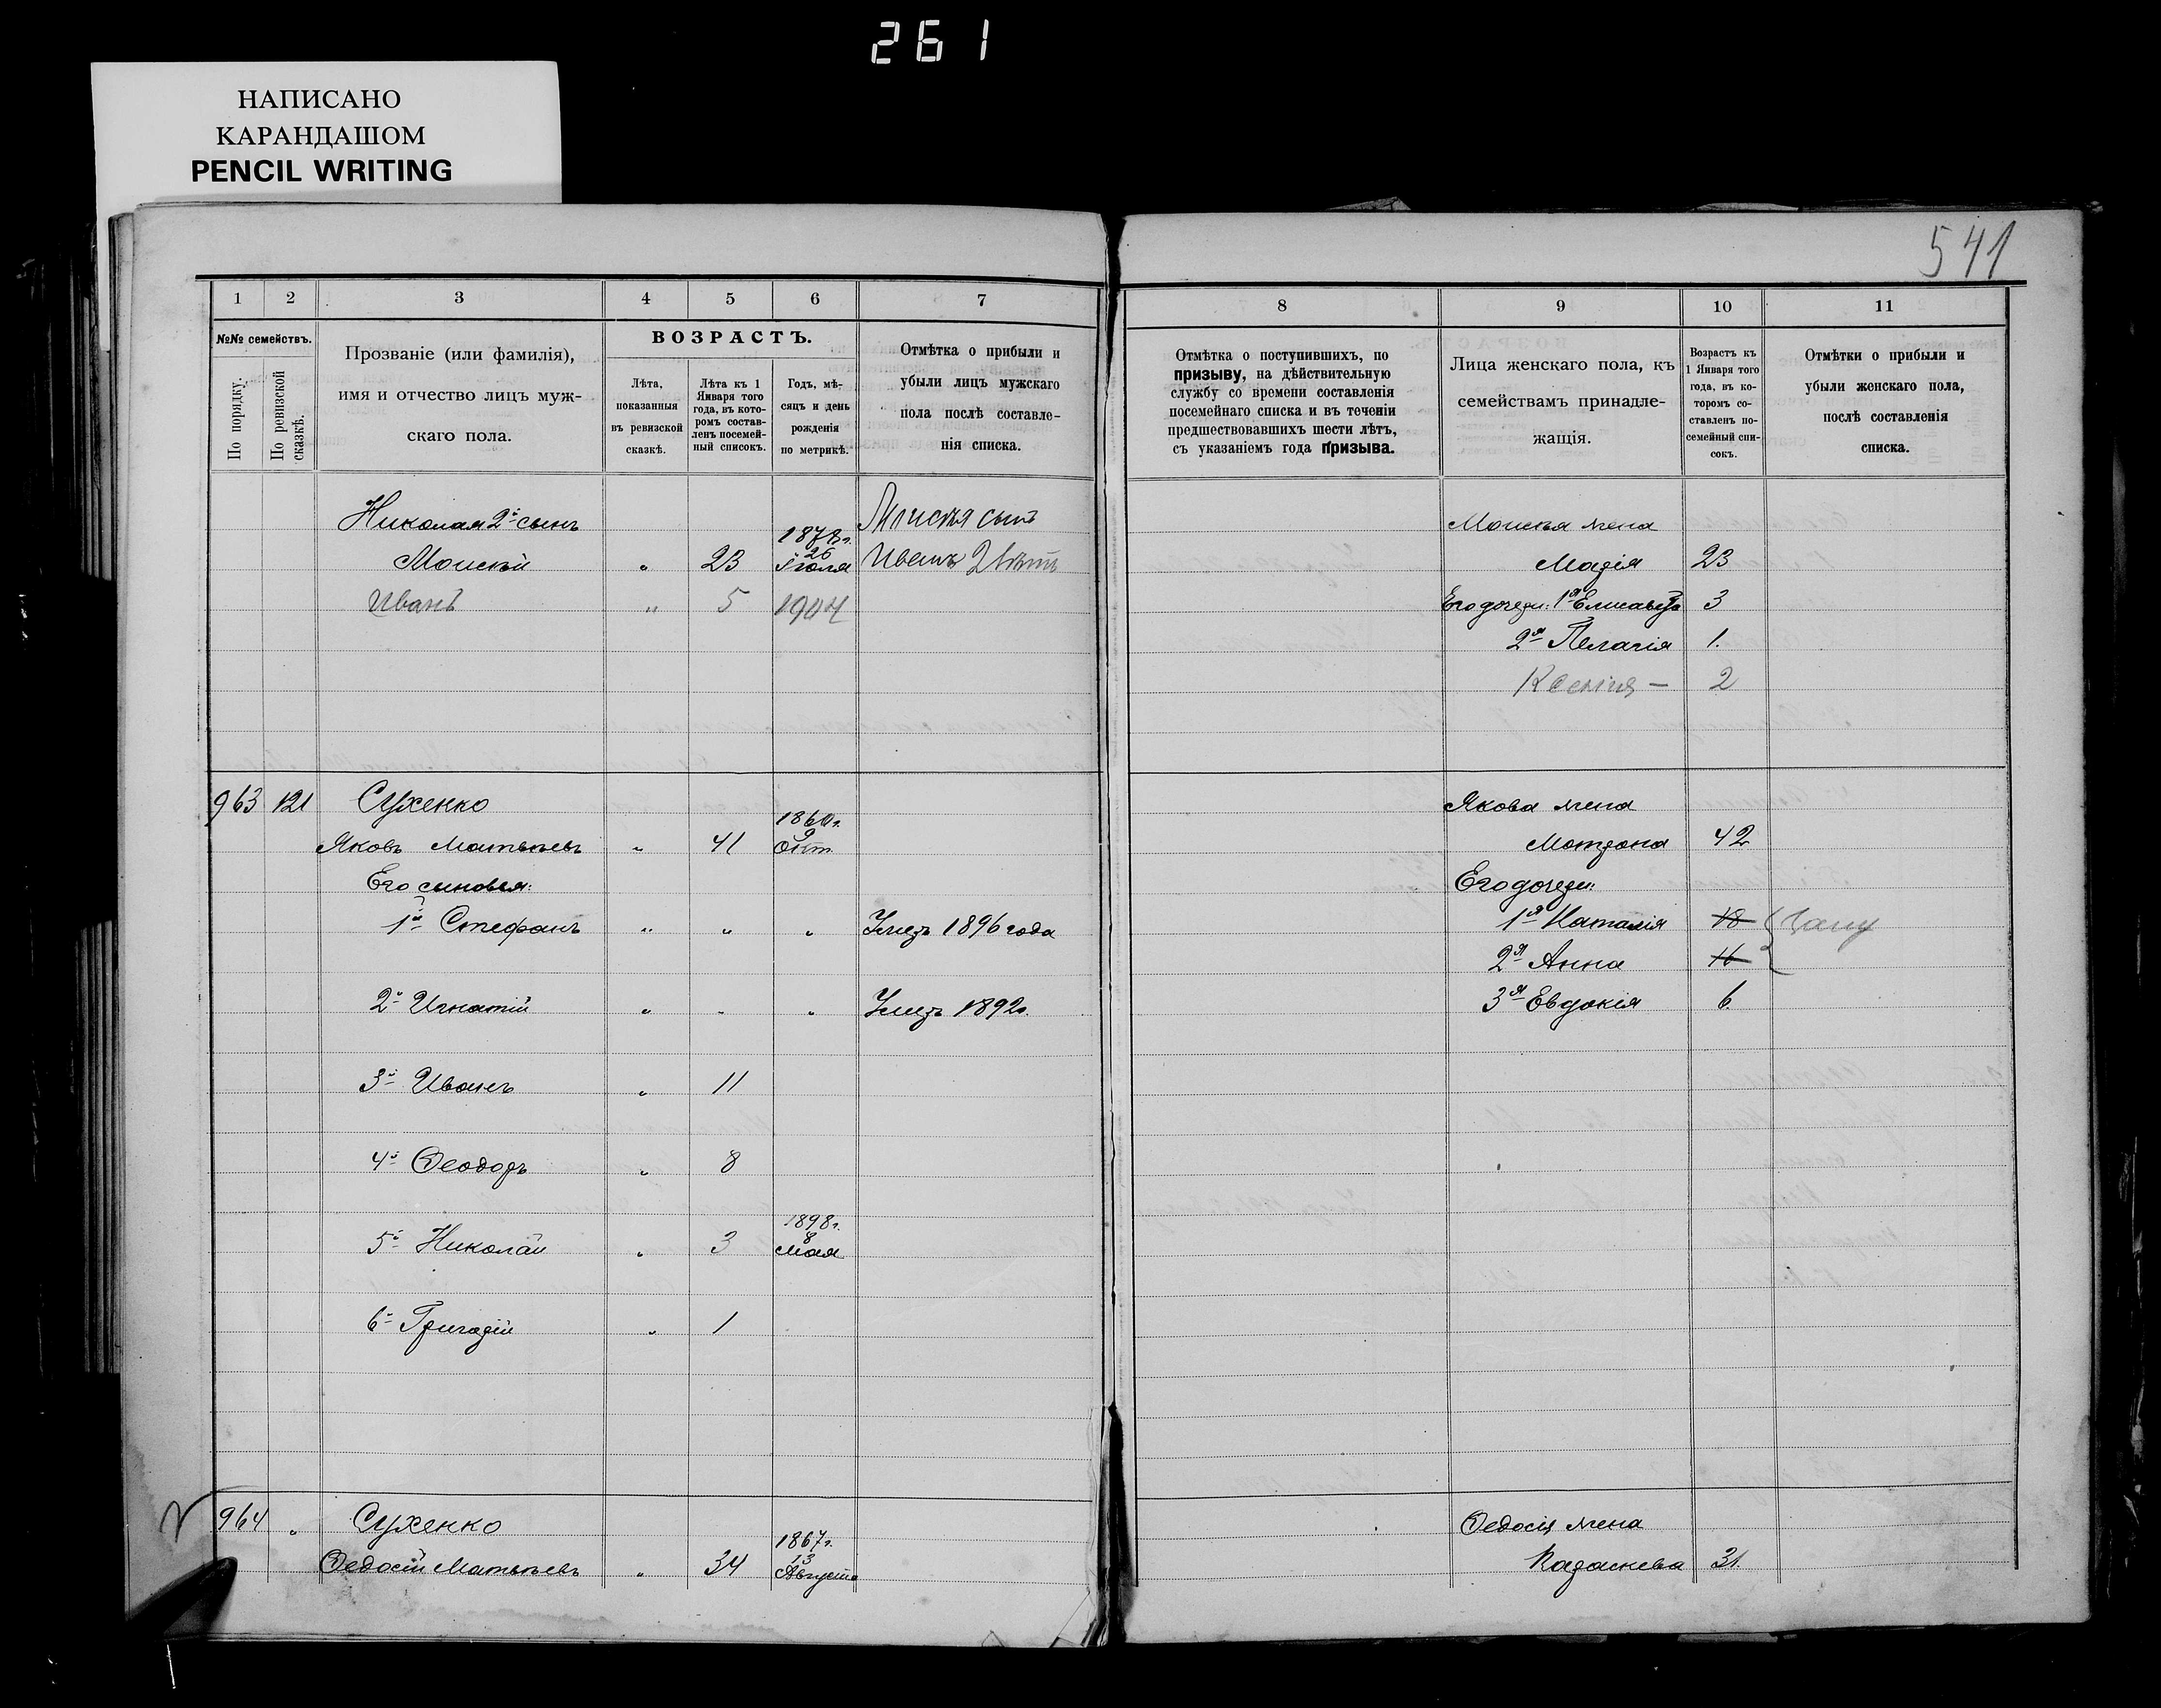 261
НАПИСАНО
КАРАНДАШОМ
PENCIL WRITING
541
1 2 3 4 5 6 7
№№ семействъ.
По порядку.
По ревизской сказкѣ.
Прозваніе (или фамилія),
имя и отчество лицъ муж-
скаго пола.
ВОЗРАСТЪ.
Лѣта,
показанныя
въ ревизской
сказкѣ.
Лѣта къ 1
Января того
года, въ кото-
ромъ состав-
ленъ посемей-
ный списокъ.
Годъ, мѣ-
сяцъ и день
рожденія
по метрикѣ.
Отмѣтка о прибыли и
убыли лицъ мужскаго
пола послѣ составле-
нія списка.
8 9 10 11
Отмѣтка о поступившихъ, по
призыву, на дѣйствительную
службу со времени составленія
посемейнаго списка и въ теченіи
предшествовавшихъ шести лѣтъ,
съ указаніемъ года призыва.
Лица женскаго пола, къ
семействамъ принадле-
жащія.
Возрастъ къ
1 Января того
года, въ ко-
торомъ со-
ставленъ по-
семейный спи-
сокъ.
Отмѣтки о прибыли и
убыли женскаго пола,
послѣ составленія
списка.
Николая 2й сынъ
Моисей " 23 1878 г. 26 Іюля
Моисея сынъ
Иванъ 2 лѣтъ
Иванъ " 5 1904
Моисея жена
Марія 23
Его дочери: 1я Елисавета 3
2я Пелагія 1.
Ксенія — 2
963 121 Сухенко
Яковъ Матвѣевъ " 41 1860 г. 9 Окт.
Его сыновья:
1й Стефанъ " " " Умеръ 1896 года
2й Игнатій " " " Умеръ 1892 г.
3й Иванъ " 11
4й Ѳеодоръ " 8
5й Николай " 3 1898 г. 8 Мая
6й Григорій " 1
Якова жена
Мотрона 42
Его дочери:
1я Наталія 18
2я Анна 16
3я Евдокія 6.
964 " Сухенко
Ѳедосій Матвѣевъ " 34 1867 г. 13 Августа
Ѳедосія жена
31.